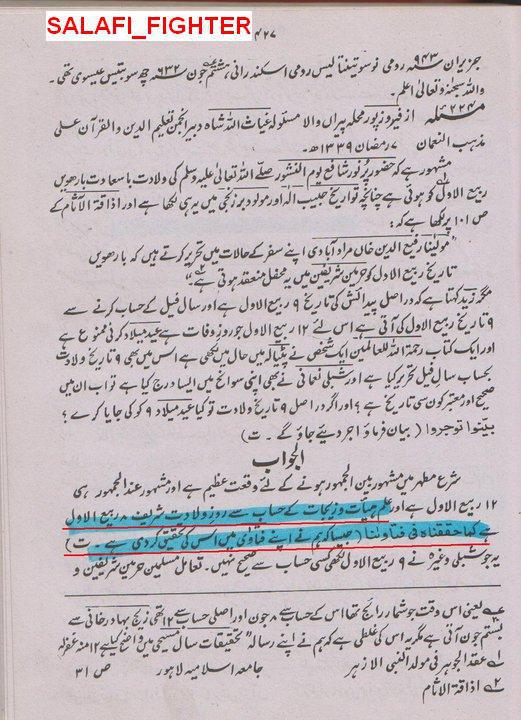 SALAFI_FIGHTER
۴۲۷
جزیران ۹۴۳ رومی نوسو تینتالیس رومی اسکندرانی، ہشتم جون ۶۳۲ چھ سو بتیس عیسوی تھی۔
واللہ سبحٰنہ وتعالیٰ اعلم۔
مسئلہ ۲۲۴ از فیروز پور محلہ پیراں والا مسئولہ غیاث اللہ شاہ دبیر انجمن تعلیم الدین والقرآن علی
مذہب النعمان ۷ رمضان ۱۳۳۹ھ۔
مشہور ہے کہ حضور پُر نور شافع یوم النشور صلے اللہ تعالیٰ علیہ وسلم کی ولادت باسعادت بارھویں
ربیع الاول کو ہوئی ہے چنانچہ تواریخ حبیب الٰہ اور مولود برزنجی میں یہی لکھا ہے اور اذاقۃ الآثام کے
ص ۱۰۱ پر لکھا ہے کہ :
"مولٰینا رفیع الدین خاں مراد آبادی اپنے سفر کے حالات میں تحریر کرتے ہیں کہ بارھویں
تاریخ ربیع الاول کو حرمین شریفین میں یہ محفل منعقد ہوتی ہے۔"
مگر زید کہتا ہے کہ دراصل پیدائش کی تاریخ ۹ ربیع الاول ہے اور سال فیل کے حساب کرنے سے
۹ تاریخ ربیع الاول کی آتی ہے اس لئے ۱۲ ربیع الاول جو روز وفات ہے عید میلاد کرنی ممنوع ہے
اور ایک کتاب رحمۃ اللعالمین ایک شخص نے پٹیالہ میں حال میں لکھی ہے اس میں بھی ۹ تاریخ ولادت
بحساب سال فیل تحریر کیا ہے اور شبلی نعمانی نے بھی اپنی سوانح میں ایسا درج کیا ہے تو اب ان میں
صحیح اور معتبر کون سی تاریخ ہے؟ اور اگر دراصل ۹ تاریخ ولادت تو کیا عید میلاد ۹ کو کی جایا کرے؟
بیّنوا توجروا (بیان فرماؤ اجر دیئے جاؤ گے۔ ت)
الجواب
شرع مطہر میں مشہور بین الجمہور ہونے کے لئے وقعت عظیم ہے اور مشہور عند الجمہور ہی
۱۲ ربیع الاول ہے اور علم ہیأت و زیجات کے حساب سے روز ولادت شریف ۸ ربیع الاول
ہے کما حققناہ فی فتاوٰنا (جیسا کہ ہم نے اپنے فتاوٰی میں اس کی تحقیق کر دی ہے۔ ت)
یہ جو شبلی وغیرہ نے ۹ ربیع الاول لکھی کسی حساب سے صحیح نہیں۔ تعامل مسلمین حرمین شریفین و
عہ یعنی اس وقت جو شمار رائج تھا اس کے حساب سے ۸ جون اور اصلی حساب سے ۱۲ تھی زیج بہادر خانی سے
بستم جون آتی ہے مگر یہ اس کی غلطی ہے کہ ہم نے اپنے رسالہ "تحقیقات سال مسیحی" میں واضح کیا ہے ۱۲ منہ غفرلہ
۱ عقد الجوہر فی مولد النبی الازہر جامعہ اسلامیہ لاہور ص ۳۱
۲ اذاقۃ الاثام